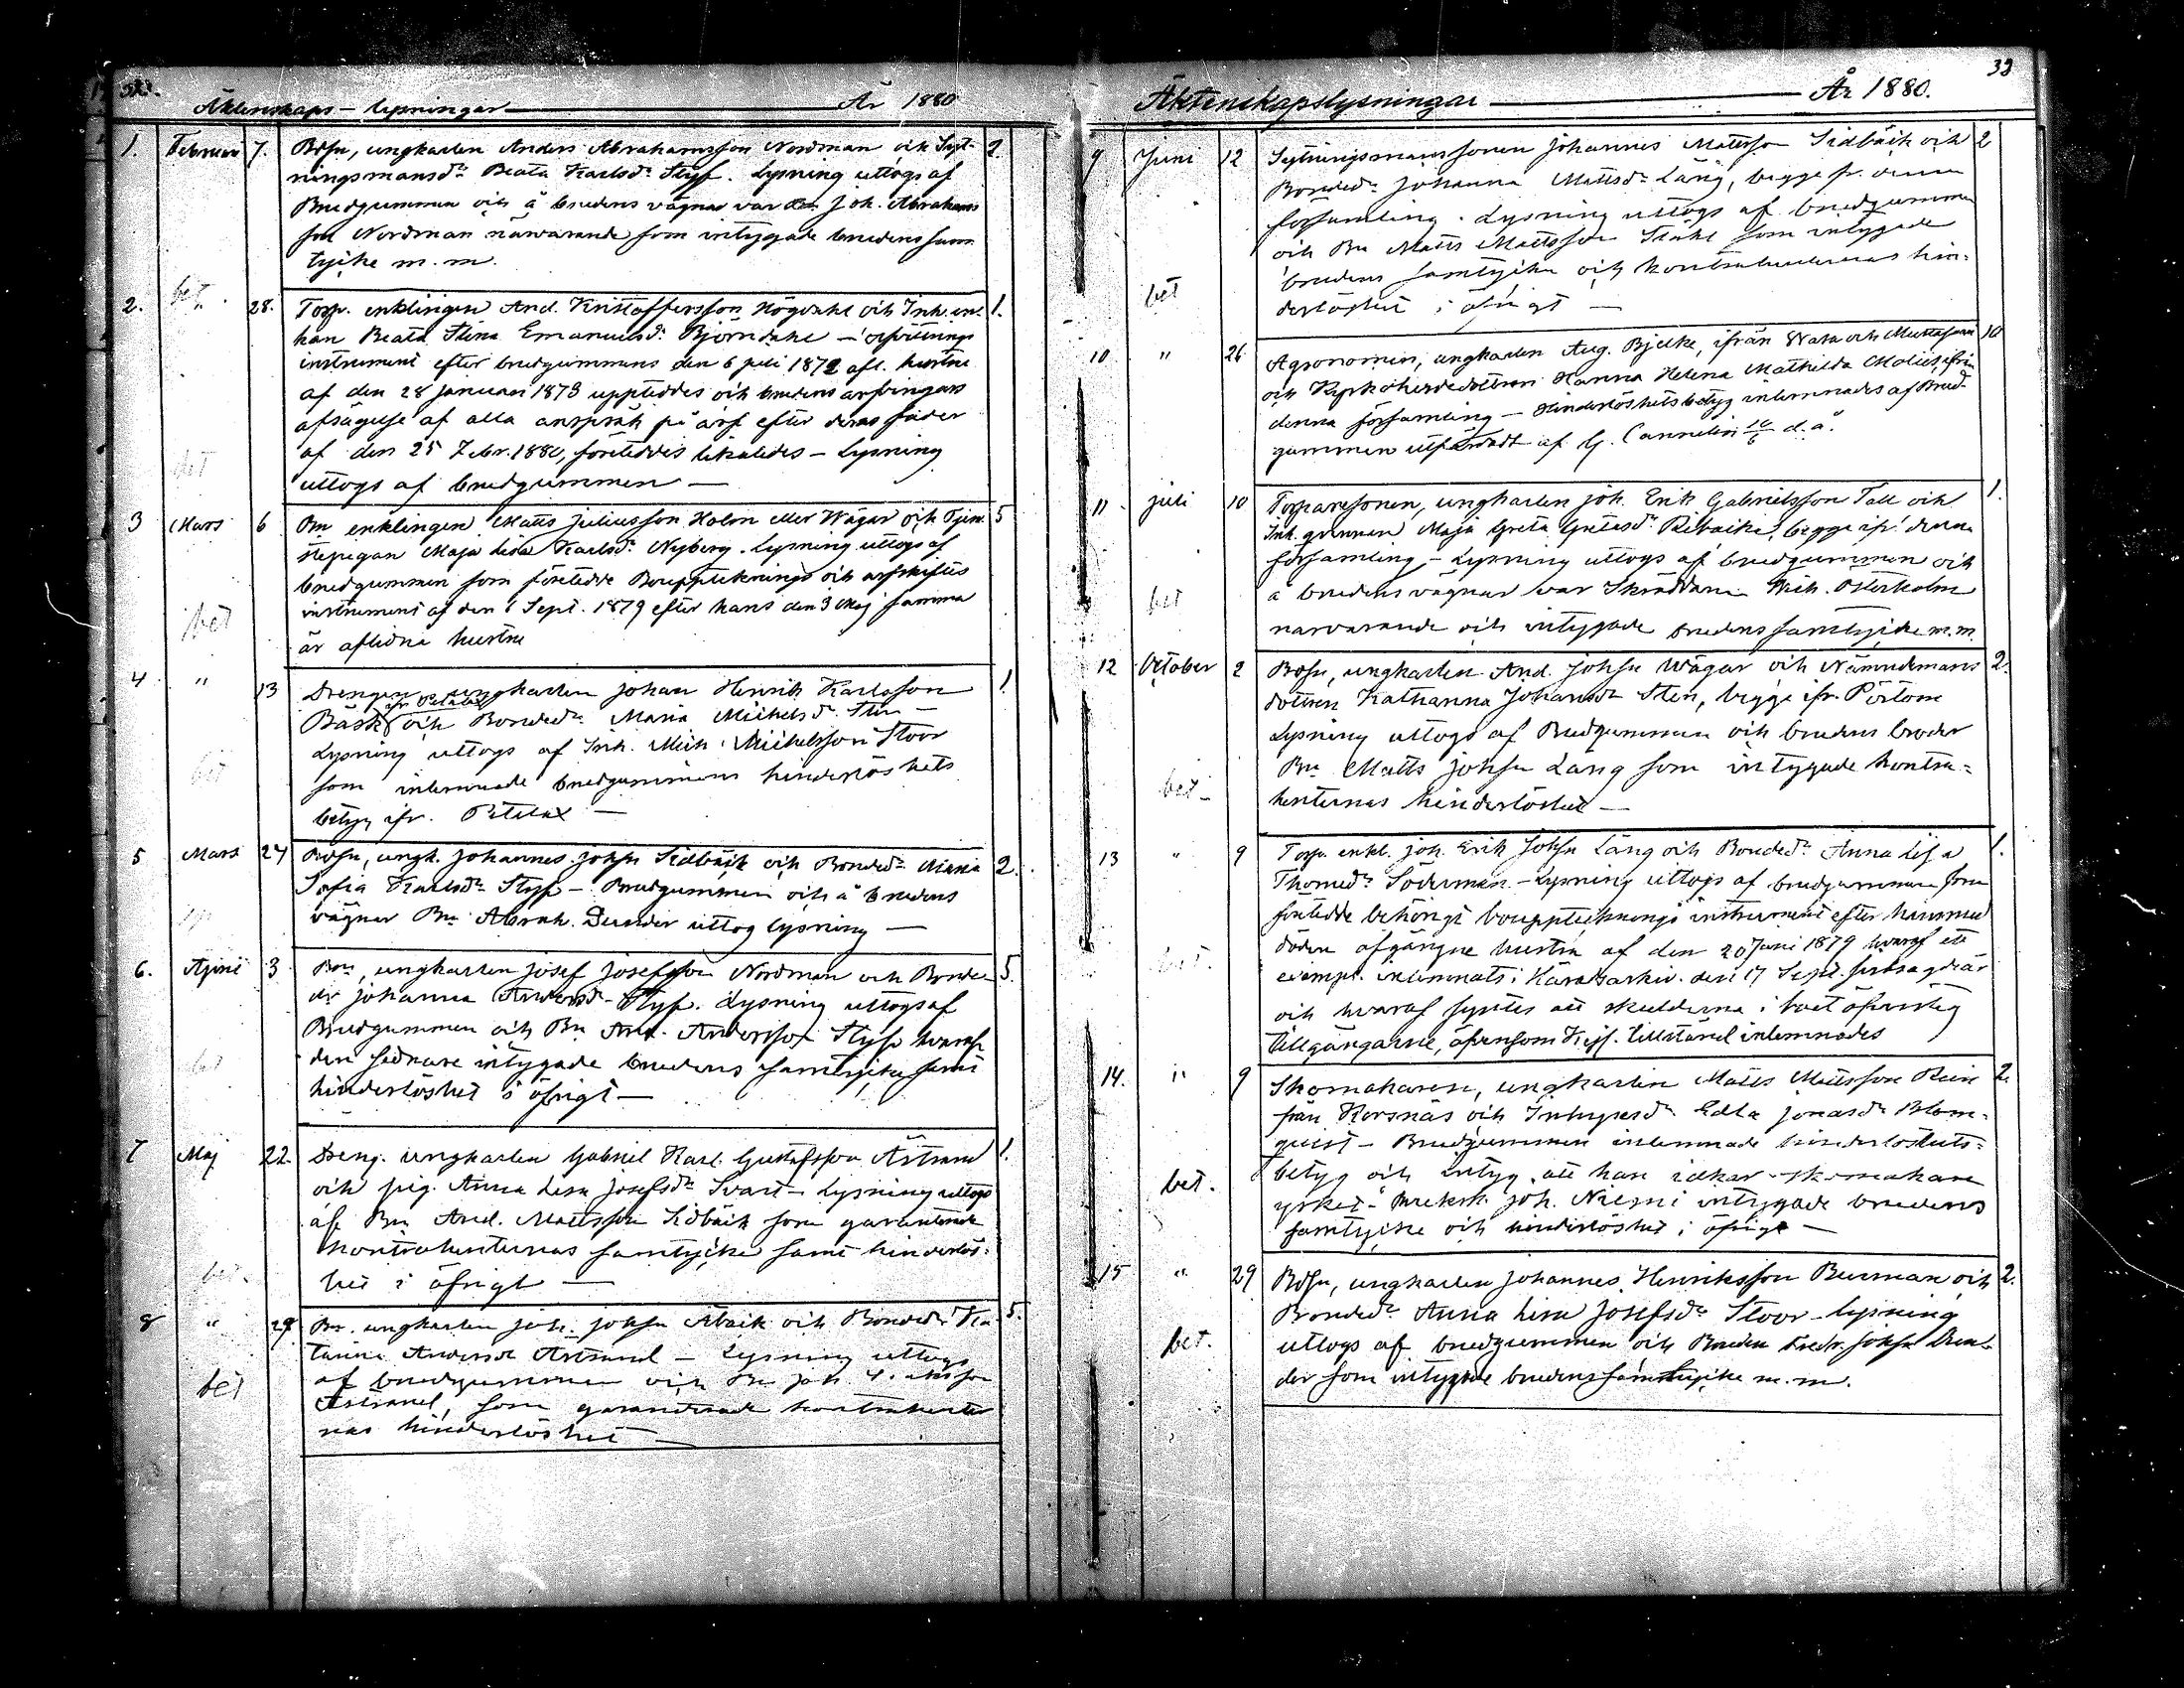 Äktenskaps-lysningar År 1880
1. Februari 7. Bdsn, ungkarlen Anders Abrahamsson Nordman och Syt- 2.
ningsmansdr Beata Karlsdr Styf. Lysning uttogs af
Brudgummen och å brudens vägnar var Joh. Abrahams
son Nordman närvarande som intygade brudens sam
tycke m.m.
bet
2. " 28. Torp. enklingen And. Kristoffersson Högdahl och Inh. en- 1.
kan Beata Stina Emanuelsdr Björndahl –
instrument efter brudgummens den 6 juli 1872 afl. hustru
af den 28 januari 1873 uppteddes och brudens arfvingars
afsägelse af alla anspråk på arf efter deras fader
af den 25 Febr. 1880, företeddes likaledes – Lysning
bet
uttogs af brudgummen –
3 Mars 6 Bn enklingen Matts Juliusson Holm eller Wägar och Tjen- 5
stepigan Maja Lisa Karlsdr Nyberg. Lysning uttogs af
brudgummen som företedde Bouppteknings och arfskiftes
instrument af den 6 Sept. 1879 efter hans den 3 Maj samma
bet
år aflidna hustru
4 " 13 Drengen ungkarlen Johan Henrik Karlsson 1.
ifr Petalax
Bäsk och Bondedr Maria Michelsdr Sten –
Lysning uttogs af Inh. Mich. Michelsson Stoor
som inlemnade brudgummens hinderlöshets
bet
betyg ifr. Petalax –
5 Mars 27 Bdsn, ungk. Johannes Johsn Sidbäck och Bondedr Maria 2.
Sofia Karlsdr Styf – Brudgummen och å brudens
vägnar Bn Abrah. Dunder uttog lysning –
6. April 3 Bn, ungkarlen Josef Josefsson Nordman och Bonde- 5.
dr Johanna Andersdr Styf. Lysning uttogs af
Brudgummen och Bn And. Andersson Styf hvaraf
den sednare intygade brudens samtycke samt
bet
hinderlöshet i öfrigt –
7 Maj 22. Dreng. ungkarlen Gabriel Karl Gustafsson Åstrand 1.
och pig. Anna Lisa Josefsdr Svart – Lysning uttogs
af Bn And. Mattsson Sidbäck som garanterade
Kontrahenternas samtycke samt hinderlös-
bet.
het i öfrigt –
8 " 29 Bn. ungkarlen Joh. Johsn Åbäck och Bondedr Ka- 5.
tarina Andersdr Åstrand – Lysning uttogs
bet
af brudgummen och Bn Joh.
Åstrand, som garanterade kontrahenter
nas hinderlöshet –
33
Äktenskapslysningar År 1880.
9 Juni 12 Sytningsmanssonen Johannes Mattsson Sidbäck och 2
Bondedr Johanna Mattsdr Lång, begge fr. denna
församling. Lysning uttogs af brudgummen
och Bn Matts Mattsson Ståhl som intygade
brudens samtycke och kontrahenternas hin-
bet
derlöshet i öfrigt –
10 " 26 Agronomen, ungkarlen Aug. Bjelke, ifrån Wasa och Mustasaari 10
och Kyrkoherdedottren Hanna Helena Mathilda Moliis, ifrån
denna församling – Hinderlöshetsbetyg inlemnades af Brud-
gummen utfärdadt af G. Cannelin d.å.
11 juli 10 Torparesonen, ungkarlen Joh. Erik Gabrielsson Tall och 1.
Ink. qvinnan Maja Greta Gretasdr Ribacka, begge ifr. denna
församling – Lysning uttogs af brudgummen och
å brudens vägnar var Skräddaren Mich. Österholm
bet
närvarande och intygade brudens samtycke m.m.
12 October 2 Bdsn, ungkarlen And. Johsn Wägar och Nämndemans 2.
dottren Katharina Johansdr Sten, begge ifr. Pörtom
Lysning uttogs af Brudgummen och brudens broder
Bn Matts Johsn Lång som intygade kontra-
bet –
henternas hinderlöshet –
13 " 9 Torp. enkl. Joh. Erik Johsn Lång och Bondedr Anna Lisa 1.
Thomedr Söderman. – Lysning uttogs af brudgummen som
företedde behörigt bouppteckningsinstrument efter hans med
döden afgångne hustru af den 20 Juni 1879 hvaraf ett
bet.
exempl. inlemnats i Häradsarkiv. den 17 Sept. sistsagde år
och hvaraf syntes att skulderna i boet öfversteg
tillgångarne, äfvensom tillstånd inlemnades
14. " 9 Skomakaren, ungkarlen Matts Mattsson Rein 2.
från Korsnäs och Inhysesdr Edla Jonasdr Blom-
quist – Brudgummen inlemnade hinderlöshets-
bet.
betyg och intyg att han idkar skomakare
yrket – Joh. Niemi intygade brudens
samtycke och hinderlöshet i öfrigt –
15 " 29 Bdsn, ungkarlen Johannes Henriksson Burman och 2.
Bondedr Anna Lisa Josefsdr Stoor – Lysning
bet.
uttogs af brudgummen och Bonden Fredr. Johsn Dun-
der som intygade brudens samtycke m.m.